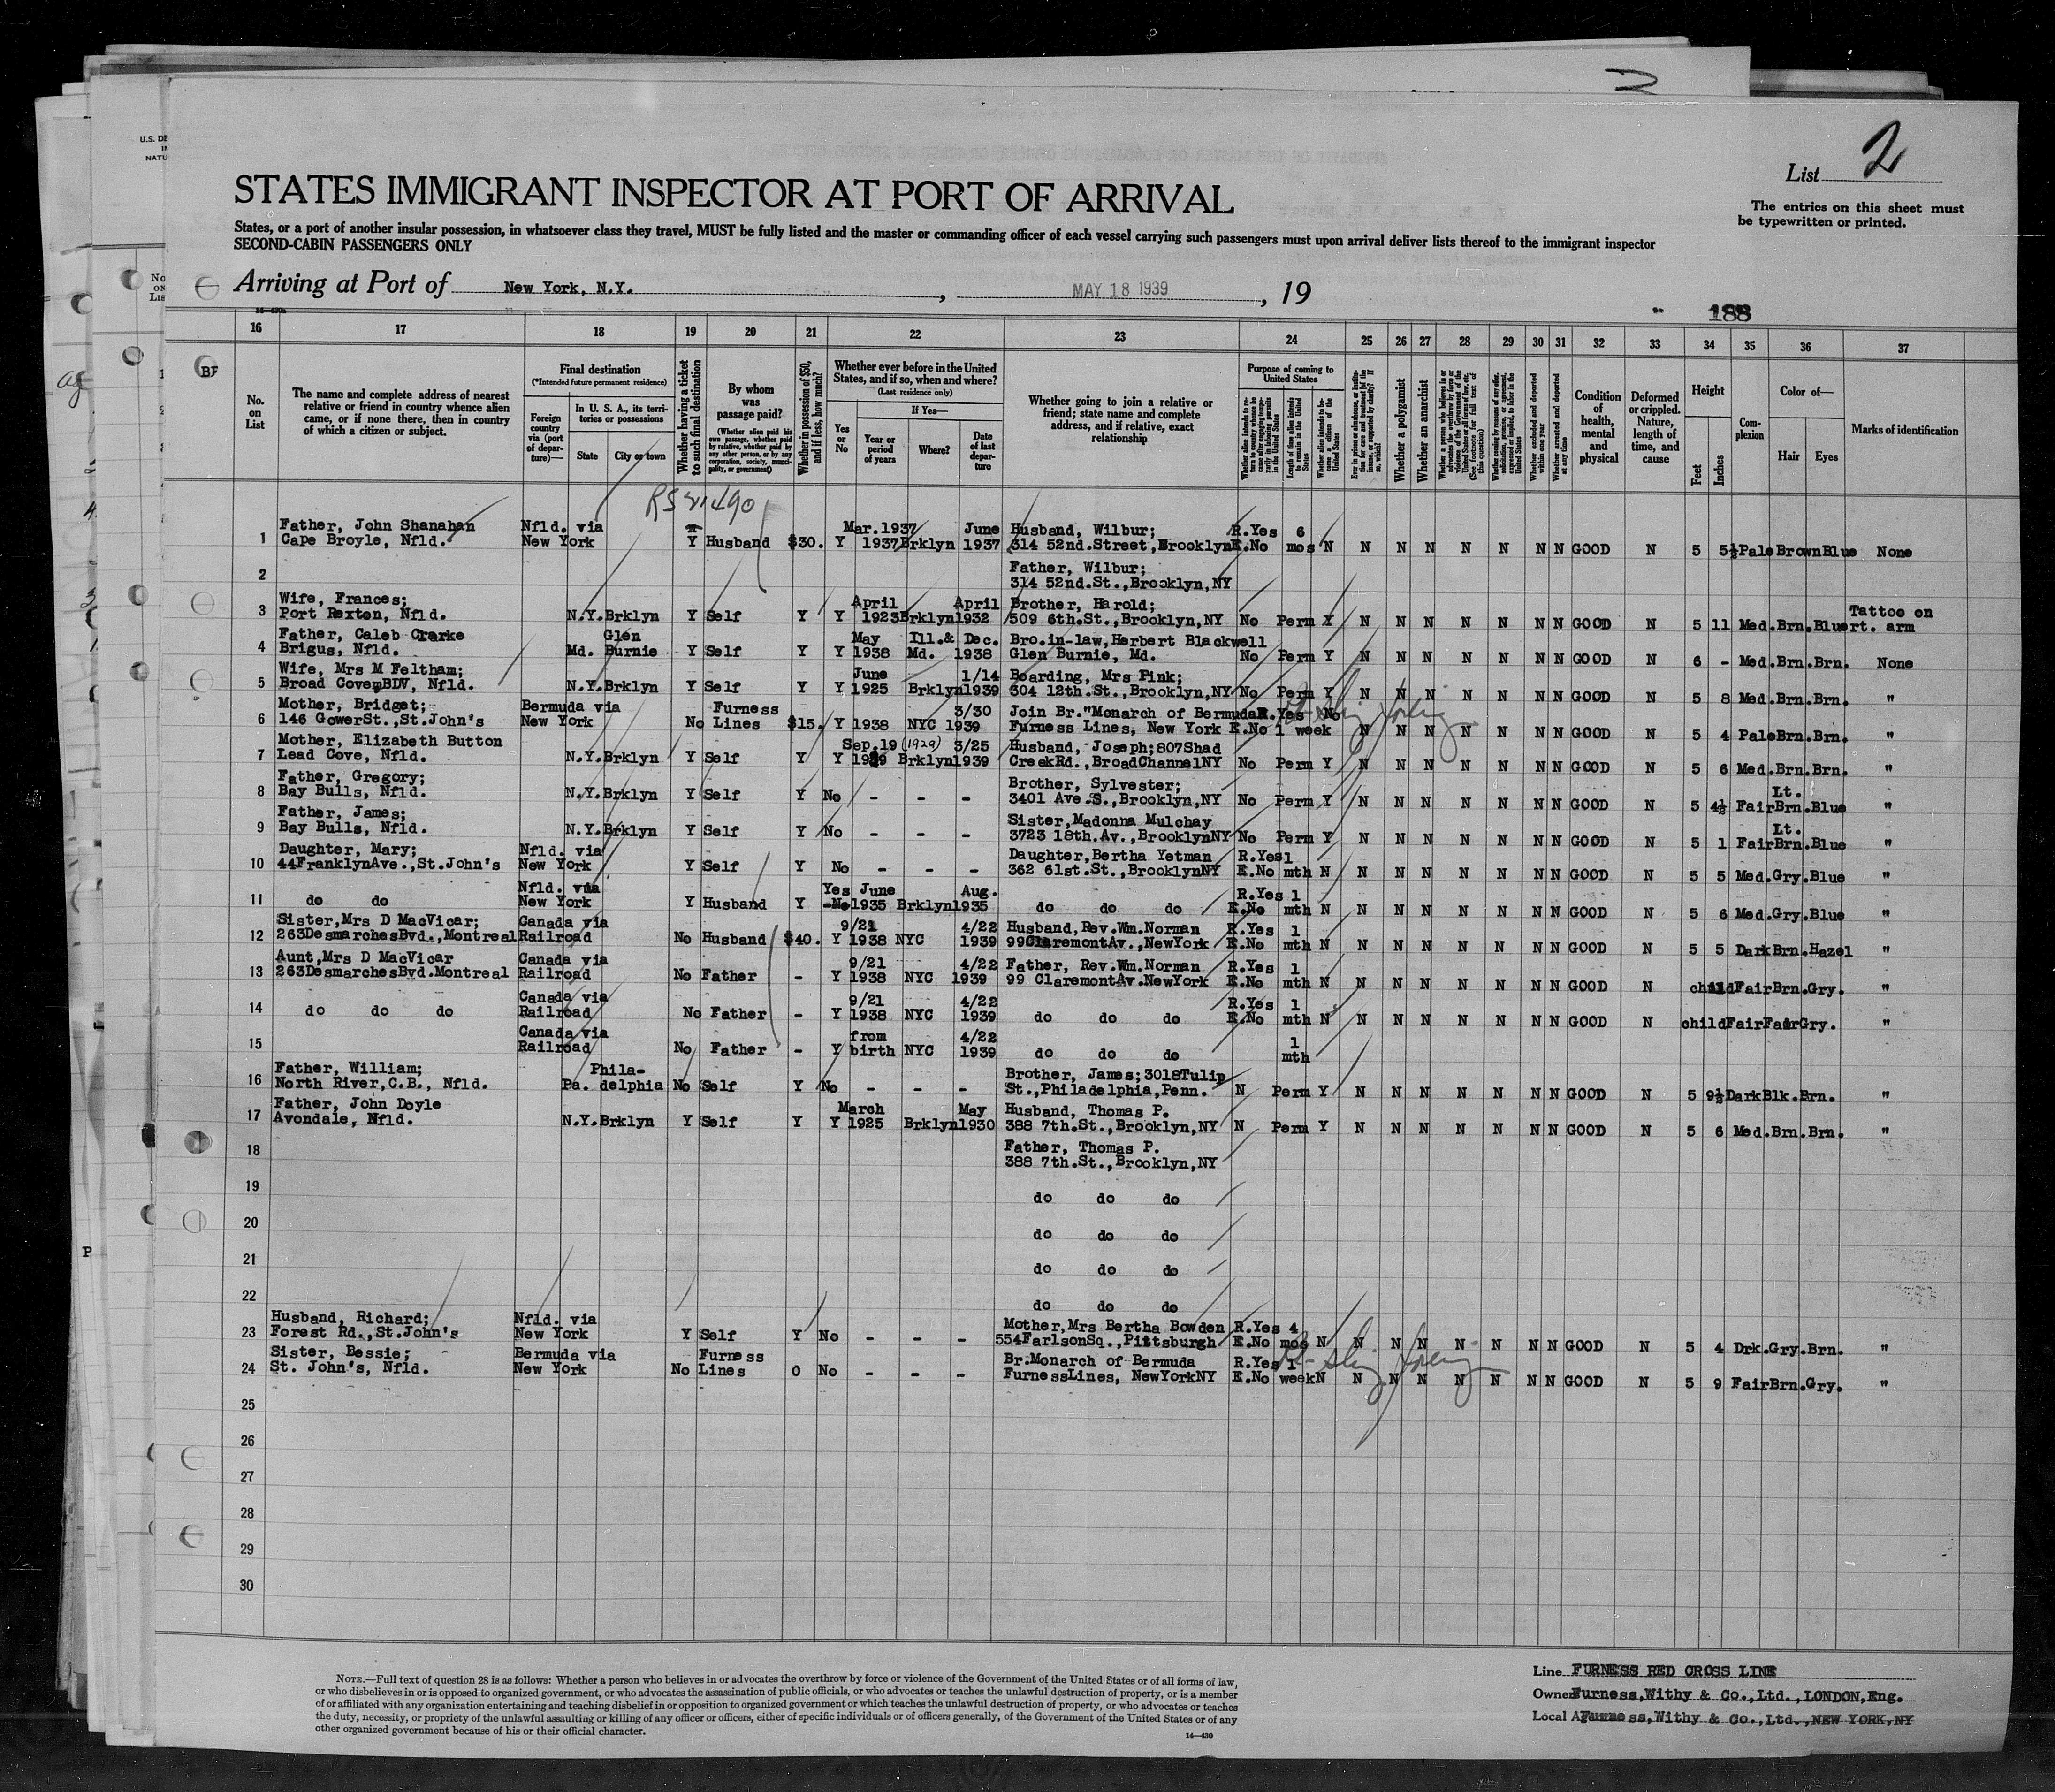 U.S. DE
NATU
List 2
The entries on this sheet must
be typewritten or printed.
STATES IMMIGRANT INSPECTOR AT PORT OF ARRIVAL
States, or a port of another insular possession, in whatsoever class they travel, MUST be fully listed and the master or commanding officer of each vessel carrying such passengers must upon arrival deliver lists thereof to the immigrant inspector
SECOND-CABIN PASSENGERS ONLY
Arriving at Port of New York, N.Y. , MAY 18 1939 , 19
188
16 17 18 19 20 21 22 23 24 25 26 27 28 29 30 31 32 33 34 35 36 37
No. on List
The name and complete address of nearest relative or friend in country whence alien came, or if none there, then in country of which a citizen or subject.
Final destination
(*Intended future permanent residence)
Foreign country via (port of departure)—
In U. S. A., its territories or possessions
State
City or town
Whether having a ticket to such final destination
By whom was passage paid?
(Whether alien paid his own passage, whether paid by relative, whether paid by any other person, or by any corporation, society, municipality, or government)
Whether in possession of $50, and if less, how much?
Whether ever before in the United States, and if so, when and where?
(Last residence only)
If Yes—
Yes or No
Year or period of years
Where?
Date of last departure
Whether going to join a relative or friend; state name and complete address, and if relative, exact relationship
Purpose of coming to United States
Length of time alien intends to remain in the United States
Whether alien intends to become a citizen of the United States
Whether a polygamist
Whether an anarchist
Whether excluded and deported within one year
Whether arrested and deported at any time
Condition of health, mental and physical
Deformed or crippled. Nature, length of time, and cause
Height
Feet
Inches
Complexion
Color of—
Hair
Eyes
Marks of identification
Father, John Shanahan Nfld. via Mar.1937 June Husband, Wilbur; R.Yes 6
1 Cape Broyle, Nfld. New York Y Husband $30. Y 1937 Brklyn 1937 314 52nd.Street, Brooklyn E.No mos N N N N N N N N GOOD N 5 5½ Pale Brown Blue None
2 Father, Wilbur;
314 52nd.St.,Brooklyn,NY
Wife, Frances; April April Brother, Harold; Tattoo on
3 Port Rexton, Nfld. N.Y. Brklyn Y Self Y Y 1923 Brklyn 1932 509 6th.St.,Brooklyn,NY No Perm Y N N N N N N N GOOD N 5 11 Med. Brn. Blue rt. arm
Father, Caleb Clarke Glen May Ill.& Dec. Bro.in-law, Herbert Blackwell
4 Brigus, Nfld. Md. Burnie Y Self Y Y 1938 Md. 1938 Glen Burnie, Md. No Perm Y N N N N N N N GOOD N 6 - Med. Brn. Brn. None
Wife, Mrs M Feltham; June 1/14 Boarding, Mrs Pink;
5 Broad Cove,BDV, Nfld. N.Y. Brklyn Y Self Y Y 1925 Brklyn 1939 304 12th.St.,Brooklyn,NY No Perm Y N N N N N N N GOOD N 5 8 Med. Brn. Brn. "
Mother, Bridget; Bermuda via Furness 3/30 Join Br."Monarch of Bermuda R.Yes No
6 146 GowerSt.,St.John's New York No Lines $15. Y 1938 NYC 1939 Furness Lines, New York E.No 1 week N N N N N N N GOOD N 5 4 Pale Brn. Brn. "
Mother, Elizabeth Button Sep.19 (1929) 3/25 Husband, Joseph;807Shad
7 Lead Cove, Nfld. N.Y. Brklyn Y Self Y Y Brklyn 1939 CreekRd.,BroadChannelNY No Perm Y N N N N N N N GOOD N 5 6 Med. Brn. Brn. "
Father, Gregory; Brother, Sylvester; Lt.
8 Bay Bulls, Nfld. N.Y. Brklyn Y Self Y No - - - 3401 Ave.S.,Brooklyn,NY No Perm Y N N N N N N N GOOD N 5 4½ Fair Brn. Blue "
Father, James; Sister,Madonna Mulchay Lt.
9 Bay Bulls, Nfld. N.Y. Brklyn Y Self Y No - - - 3723 18th.Av.,BrooklynNY No Perm Y N N N N N N N GOOD N 5 1 Fair Brn. Blue "
Daughter, Mary; Nfld. via Daughter,Bertha Yetman R.Yes 1
10 44FranklynAve.,St.John's New York Y Self Y No - - - 362 61st.St.,BrooklynNY E.No mth N N N N N N N N GOOD N 5 5 Med. Gry. Blue "
Nfld. via Yes June Aug. R.Yes 1
11 do do New York Y Husband Y -No- 1935 Brklyn 1935 do do do E.No mth N N N N N N N N GOOD N 5 6 Med. Gry. Blue "
Sister,Mrs D MacVicar; Canada via 9/21 4/22 Husband, Rev.Wm.Norman R.Yes 1
12 263DesmarchesBvd.,Montreal Railroad No Husband $40. Y 1938 NYC 1939 99ClaremontAv.,NewYork E.No mth N N N N N N N N GOOD N 5 5 Dark Brn. Hazel "
Aunt,Mrs D MacVicar Canada via 9/21 4/22 Father, Rev.Wm.Norman R.Yes 1
13 263DesmarchesBvd.Montreal Railroad No Father - Y 1938 NYC 1939 99 ClaremontAv.NewYork E.No mth N N N N N N N N GOOD N child Fair Brn. Gry. "
Canada via 9/21 4/22 R.Yes 1
14 do do do Railroad No Father - Y 1938 NYC 1939 do do do E.No mth N N N N N N N N GOOD N child Fair Fair Gry. "
Canada via from 4/22 1
15 Railroad No Father - Y birth NYC 1939 do do do mth
Father, William; Phila- Brother, James;3018Tulip
16 North River,C.B., Nfld. Pa. delphia No Self Y No - - - St.,Philadelphia,Penn. N Perm Y N N N N N N N GOOD N 5 9½ Dark Blk. Brn. "
Father, John Doyle March May Husband, Thomas P.
17 Avondale, Nfld. N.Y. Brklyn Y Self Y Y 1925 Brklyn 1930 388 7th.St.,Brooklyn,NY N Perm Y N N N N N N N GOOD N 5 6 Med. Brn. Brn. "
18 Father, Thomas P.
388 7th.St.,Brooklyn,NY
19 do do do
20 do do do
21 do do do
22 do do do
Husband, Richard; Nfld. via Mother,Mrs Bertha Bowden R.Yes 4
23 Forest Rd.,St.John's New York Y Self Y No - - - 554FarlsonSq.,Pittsburgh E.No mos N N N N N N N N GOOD N 5 4 Drk. Gry. Brn. "
Sister, Bessie; Bermuda via Furness Br.Monarch of Bermuda R.Yes 1
24 St. John's, Nfld. New York No Lines 0 No - - - FurnessLines, NewYorkNY E.No week N N N N N N N N GOOD N 5 9 Fair Brn. Gry. "
25
26
27
28
29
30
NOTE.—Full text of question 28 is as follows: Whether a person who believes in or advocates the overthrow by force or violence of the Government of the United States or of all forms of law,
or who disbelieves in or is opposed to organized government, or who advocates the assassination of public officials, or who advocates or teaches the unlawful destruction of property, or is a member
of or affiliated with any organization entertaining and teaching disbelief in or opposition to organized government or which teaches the unlawful destruction of property, or who advocates or teaches
the duty, necessity, or propriety of the unlawful assaulting or killing of any officer or officers, either of specific individuals or of officers generally, of the Government of the United States or of any
other organized government because of his or their official character.
14—430
Line FURNESS RED CROSS LINE
Owner Furness,Withy & Co.,Ltd.,LONDON,Eng.
Local A Furness,Withy & Co.,Ltd.,NEW YORK,NY